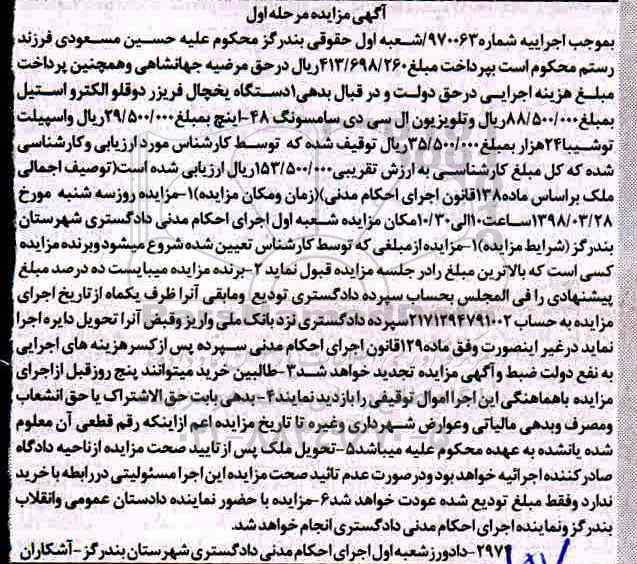 آگهی مزایده مرحله اول
بموجب اجراییه شماره۹۷۰۰۶۳/شعبه اول حقوقی بندرگز محکوم علیه حسین مسعودی فرزند
رستم محکوم است بپرداخت مبلغ۴۱۳/۶۹۸/۲۶۰ریال درحق مرضیه جهانشاهی وهمچنین پرداخت
مبلغ هزینه اجرایی درحق دولت و در قبال بدهی۱دستگاه یخچال فریزر دوقلو الکترو استیل
بمبلغ۸۸/۵۰۰/۰۰۰ریال وتلویزیون ال سی دی سامسونگ ۴۸-اینچ بمبلغ۲۹/۵۰۰/۰۰۰ریال واسپیلت
توشیبا۲۴هزار بمبلغ۳۵/۵۰۰/۰۰۰ریال توقیف شده که توسط کارشناس مورد ارزیابی وکارشناسی
شده که کل مبلغ کارشناسی به ارزش تقریبی۱۵۳/۵۰۰/۰۰۰ریال ارزیابی شده است(توصیف اجمالی
ملک براساس ماده۱۳۸قانون اجرای احکام مدنی)(زمان ومکان مزایده)۱-مزایده روزسه شنبه مورخ
۱۳۹۸/۰۳/۲۸ساعت۱۰الی۱۰/۳۰مکان مزایده شعبه اول اجرای احکام مدنی دادگستری شهرستان
بندرگز (شرایط مزایده)۱-مزایده ازمبلغی که توسط کارشناس تعیین شده شروع میشود وبرنده مزایده
کسی است که بالاترین مبلغ رادر جلسه مزایده قبول نماید ۲-برنده مزایده میبایست ده درصد مبلغ
پیشنهادی را فی المجلس بحساب سپرده دادگستری تودیع ومابقی آنرا ظرف یکماه ازتاریخ اجرای
مزایده به حساب ۲۱۷۱۲۹۴۷۹۱۰۰۲سپرده دادگستری نزد بانک ملی واریز وقبض آنرا تحویل دایره اجرا
نماید درغیر اینصورت وفق ماده۱۲۹قانون اجرای احکام مدنی سپرده پس ازکسرهزینه های اجرایی
به نفع دولت ضبط وآگهی مزایده تجدید خواهد شد۳-طالبین خرید میتوانند پنج روزقبل ازاجرای
مزایده باهماهنگی این اجرا اموال توقیفی را بازدید نمایند۴-بدهی بابت حق الاشتراک یا حق انشعاب
ومصرف وبدهی مالیاتی وعوارض شهرداری وغیره تا تاریخ مزایده اعم ازاینکه رقم قطعی آن معلوم
شده یانشده به عهده محکوم علیه میباشد۵-تحویل ملک پس ازتایید صحت مزایده ازناحیه دادگاه
صادرکننده اجرائیه خواهد بود ودرصورت عدم تائید صحت مزایده این اجرا مسئولیتی دررابطه با خرید
ندارد وفقط مبلغ تودیع شده عودت خواهد شد۶-مزایده با حضور نماینده دادستان عمومی وانقلاب
بندرگز ونماینده اجرای احکام مدنی دادگستری انجام خواهد شد.
-دادورز شعبه اول اجرای احکام مدنی دادگستری شهرستان بندرگز-آشکاران